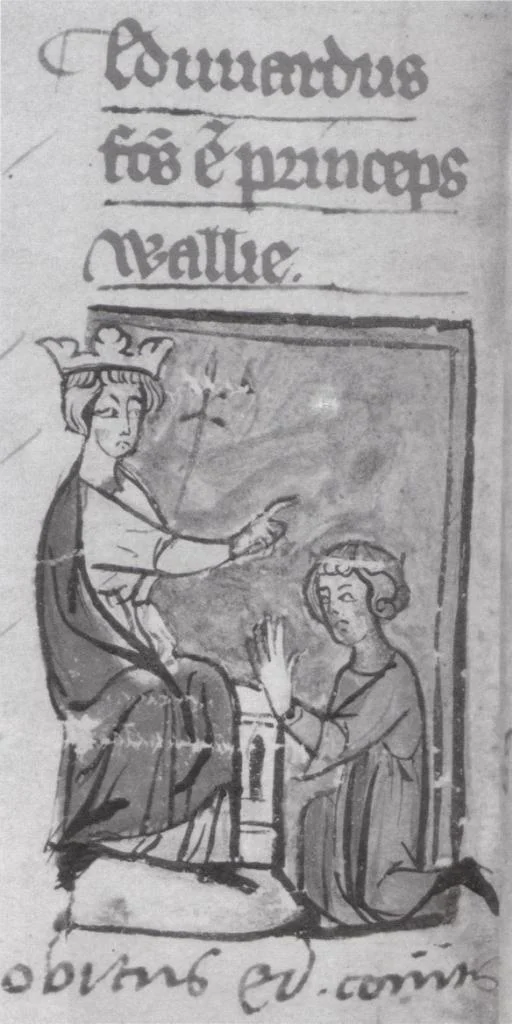 Eduuardus
fcs̄ ē princeps
wallie.
obitus ed. comitis